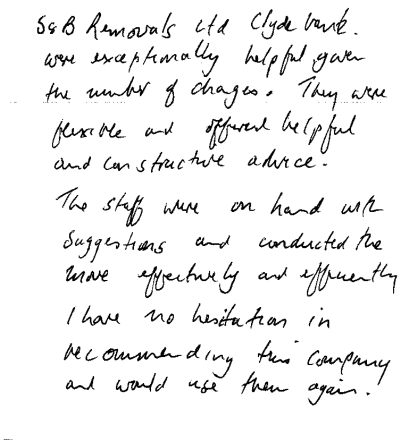 S&B Removals Ltd Clydebank.
were exceptionally helpful given
the number of changes. They were
flexible and offered helpful
and constructive advice.
The staff were on hand with
suggestions and conducted the
move effectively and efficiently
I have no hesitation in
recommending this company
and would use them again.